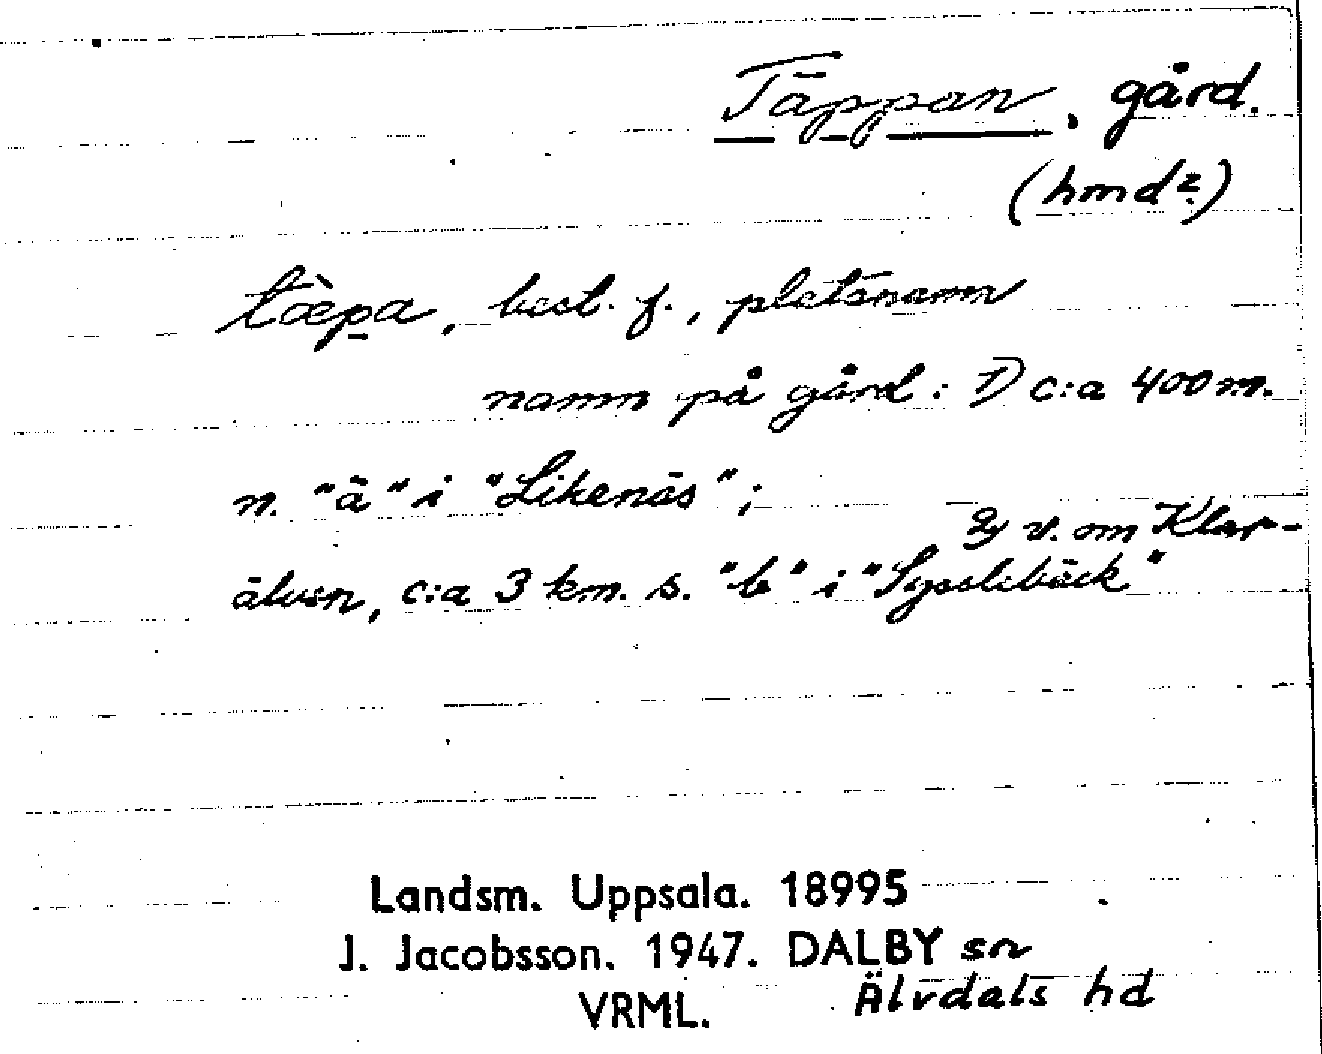 Täppan, gård.
(hmd?)
tæ̀pa, best. f., platsnamn
namn på gård: 1) c:a 400 m.
n. "ä" i "Likenäs"; 2) v. om Klar-
älven, c:a 3 km. s. "b" i "Sysslebäck"
Landsm. Uppsala. 18995
J. Jacobsson. 1947. DALBY sn
VRML. Älvdals hd